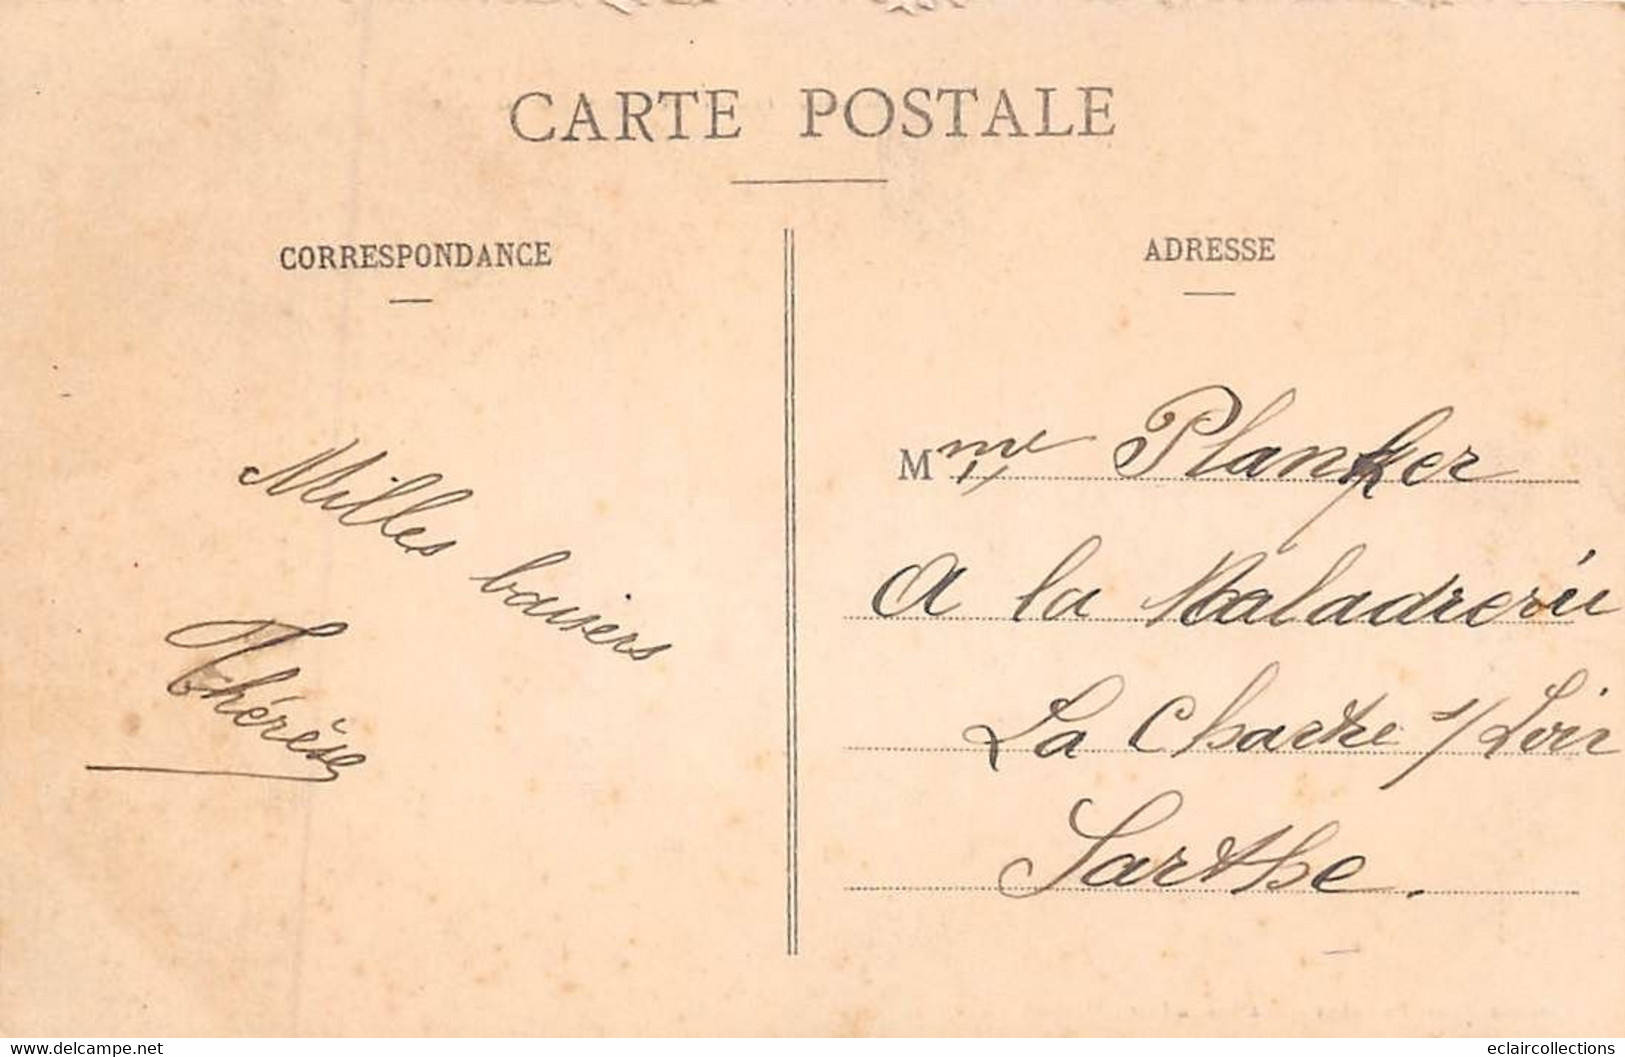 CARTE POSTALE
CORRESPONDANCE
ADRESSE
Milles baisers
Thérèse
Mme Planker
A la Maladrerie
La Chartre s/Loir
Sarthe.
www.delcampe.net
eclaircollections